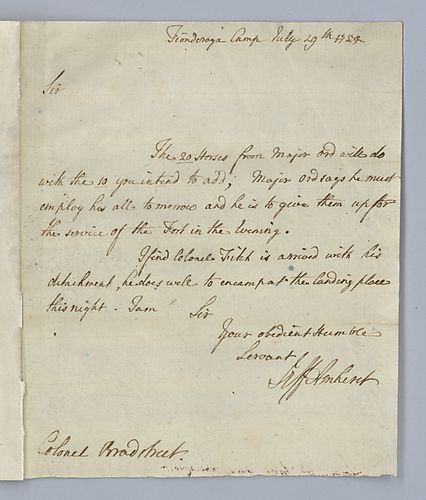 Ticonderoga Camp July 29th. 1759.
Sir
The 20 Horses from Major Ord will do
with the 10 you intend to add; Major Ord says he must
employ his all to morrow and he is to give them up for
the service of the Fort in the Evening.
I find Colonel Fitch is arrived with his
detachment, he does well to encamp at the landing place
this night. I am
Sir
Your obedient Humble
Servant
Jeff Amherst
Colonel Bradstreet.